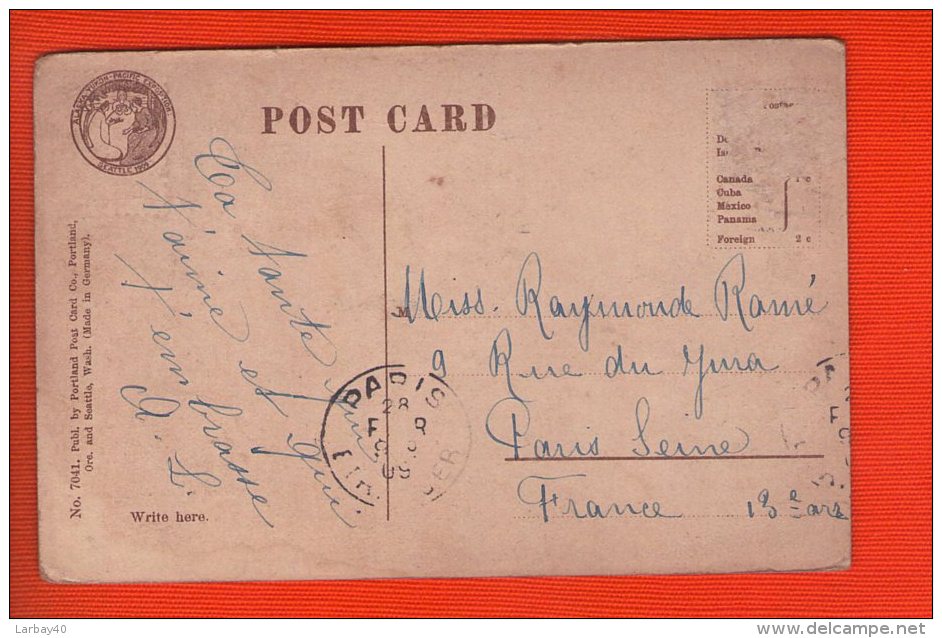 ALASKA YUKON-PACIFIC EXPOSITION
SEATTLE 1909
POST CARD
Postage
Canada
Cuba
Mexico
Panama
1 c
Foreign 2 c
No. 7041. Publ. by Portland Post Card Co., Portland,
Ore. and Seattle, Wash. (Made in Germany).
Ta tante qui
t'aime et qui
t'embrasse
A. L.
Write here.
M
Miss. Raymonde Ramé
9 Rue du
Paris Seine
France 13e arr
PARIS
28
09
PA
Larbay40
www.delcampe.net